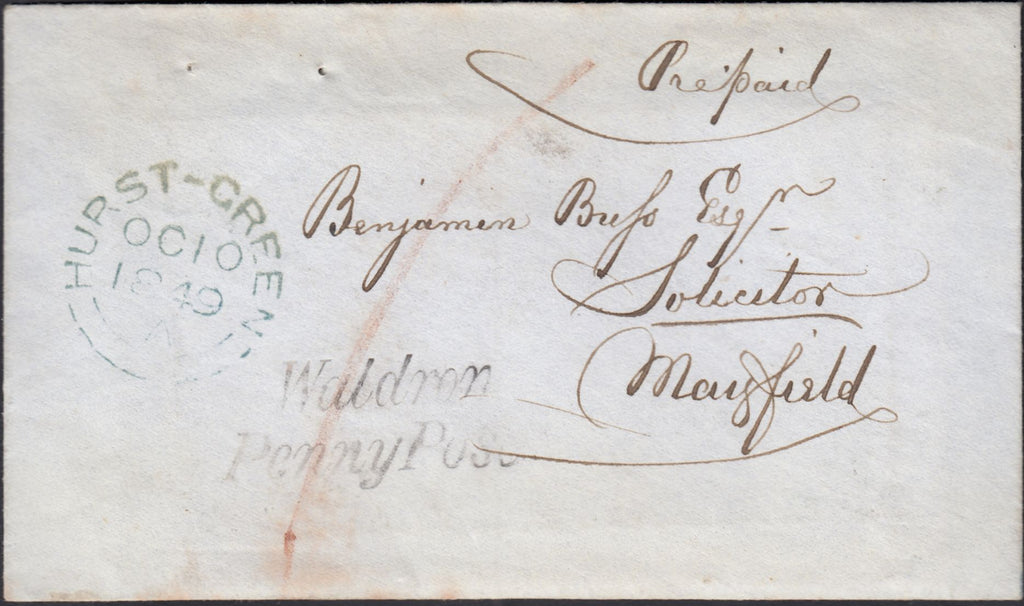 Prepaid
HURST-GREEN
OC 10
1849
Benjamin Buſs Esqr
Solicitor
Mayfield
Waldron
Penny Post